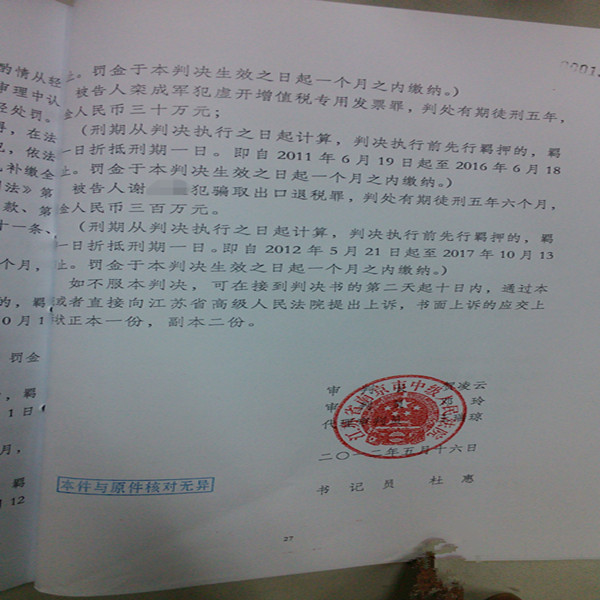 0001
止。罚金于本判决生效之日起一个月之内缴纳。）
被告人栾成军犯虚开增值税专用发票罪，判处有期徒刑五年，
金人民币三十万元；
（刑期从判决执行之日起计算，判决执行前先行羁押的，羁
一日折抵刑期一日。即自 2011 年 6 月 19 日起至 2016 年 6 月 18
止。罚金于本判决生效之日起一个月之内缴纳。）
被告人谢 犯骗取出口退税罪，判处有期徒刑五年六个月，
金人民币三百万元。
（刑期从判决执行之日起计算，判决执行前先行羁押的，羁
一日折抵刑期一日。即自 2012 年 5 月 21 日起至 2017 年 10 月 13
止。罚金于本判决生效之日起一个月之内缴纳。）
如不服本判决，可在接到判决书的第二天起十日内，通过本
或者直接向江苏省高级人民法院提出上诉，书面上诉的应交上
状正本一份，副本二份。
审 凌云
审 玲
代 琼
江苏省南京市中级人民法院
二〇一二年五月十六日
本件与原件核对无异
书 记 员 杜 惠
27
酌情从轻
审理中认
轻处罚。
，在法
，依法
补缴全
法》第
款、第
十一条、
个月，
的，羁
0 月 1
罚金
，羁
1 日
月，
羁
12